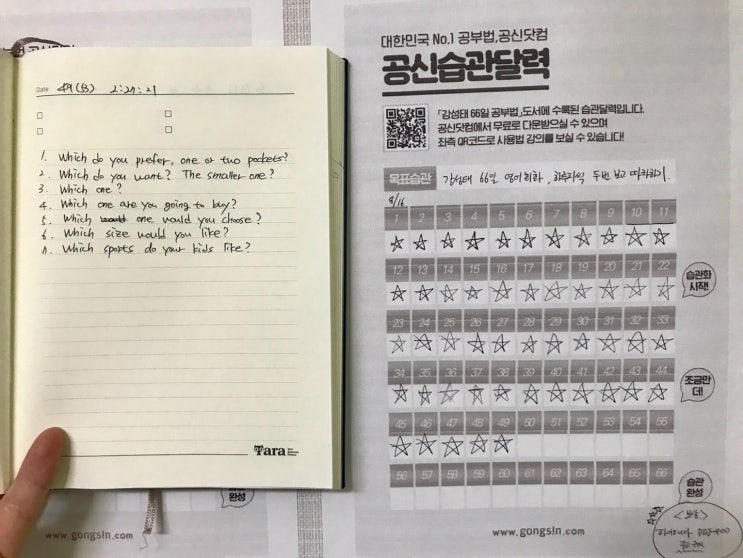 Date 49(日) 2:27:21
1. Which do you prefer, one or two pockets?
2. Which do you want? The smaller one?
3. Which one?
4. Which one are you going to buy?
5. Which would one would you choose?
6. Which size would you like?
7. Which sports do your kids like?
Tara
대한민국 No.1 공부법, 공신닷컴
공신습관달력
「강성태 66일 공부법」도서에 수록된 습관달력입니다.
공신닷컴에서 무료로 다운받으실 수 있으며
좌측 QR코드로 사용법 강의를 보실 수 있습니다!
목표습관 강성태 66일 영어회화, 하루지식 두번 보고 따라하기.
9/16
1 2 3 4 5 6 7 8 9 10 11
12 13 14 15 16 17 18 19 20 21 22
습관화
시작!
23 24 25 26 27 28 29 30 31 32 33
34 35 36 37 38 39 40 41 42 43 44
조금만
더!
45 46 47 48 49 50 51 52 53 54 55
56 57 58 59 60 61 62 63 64 65 66
습관
완성
<보상>
완성
www.gongsin.com
www.gongsin.com